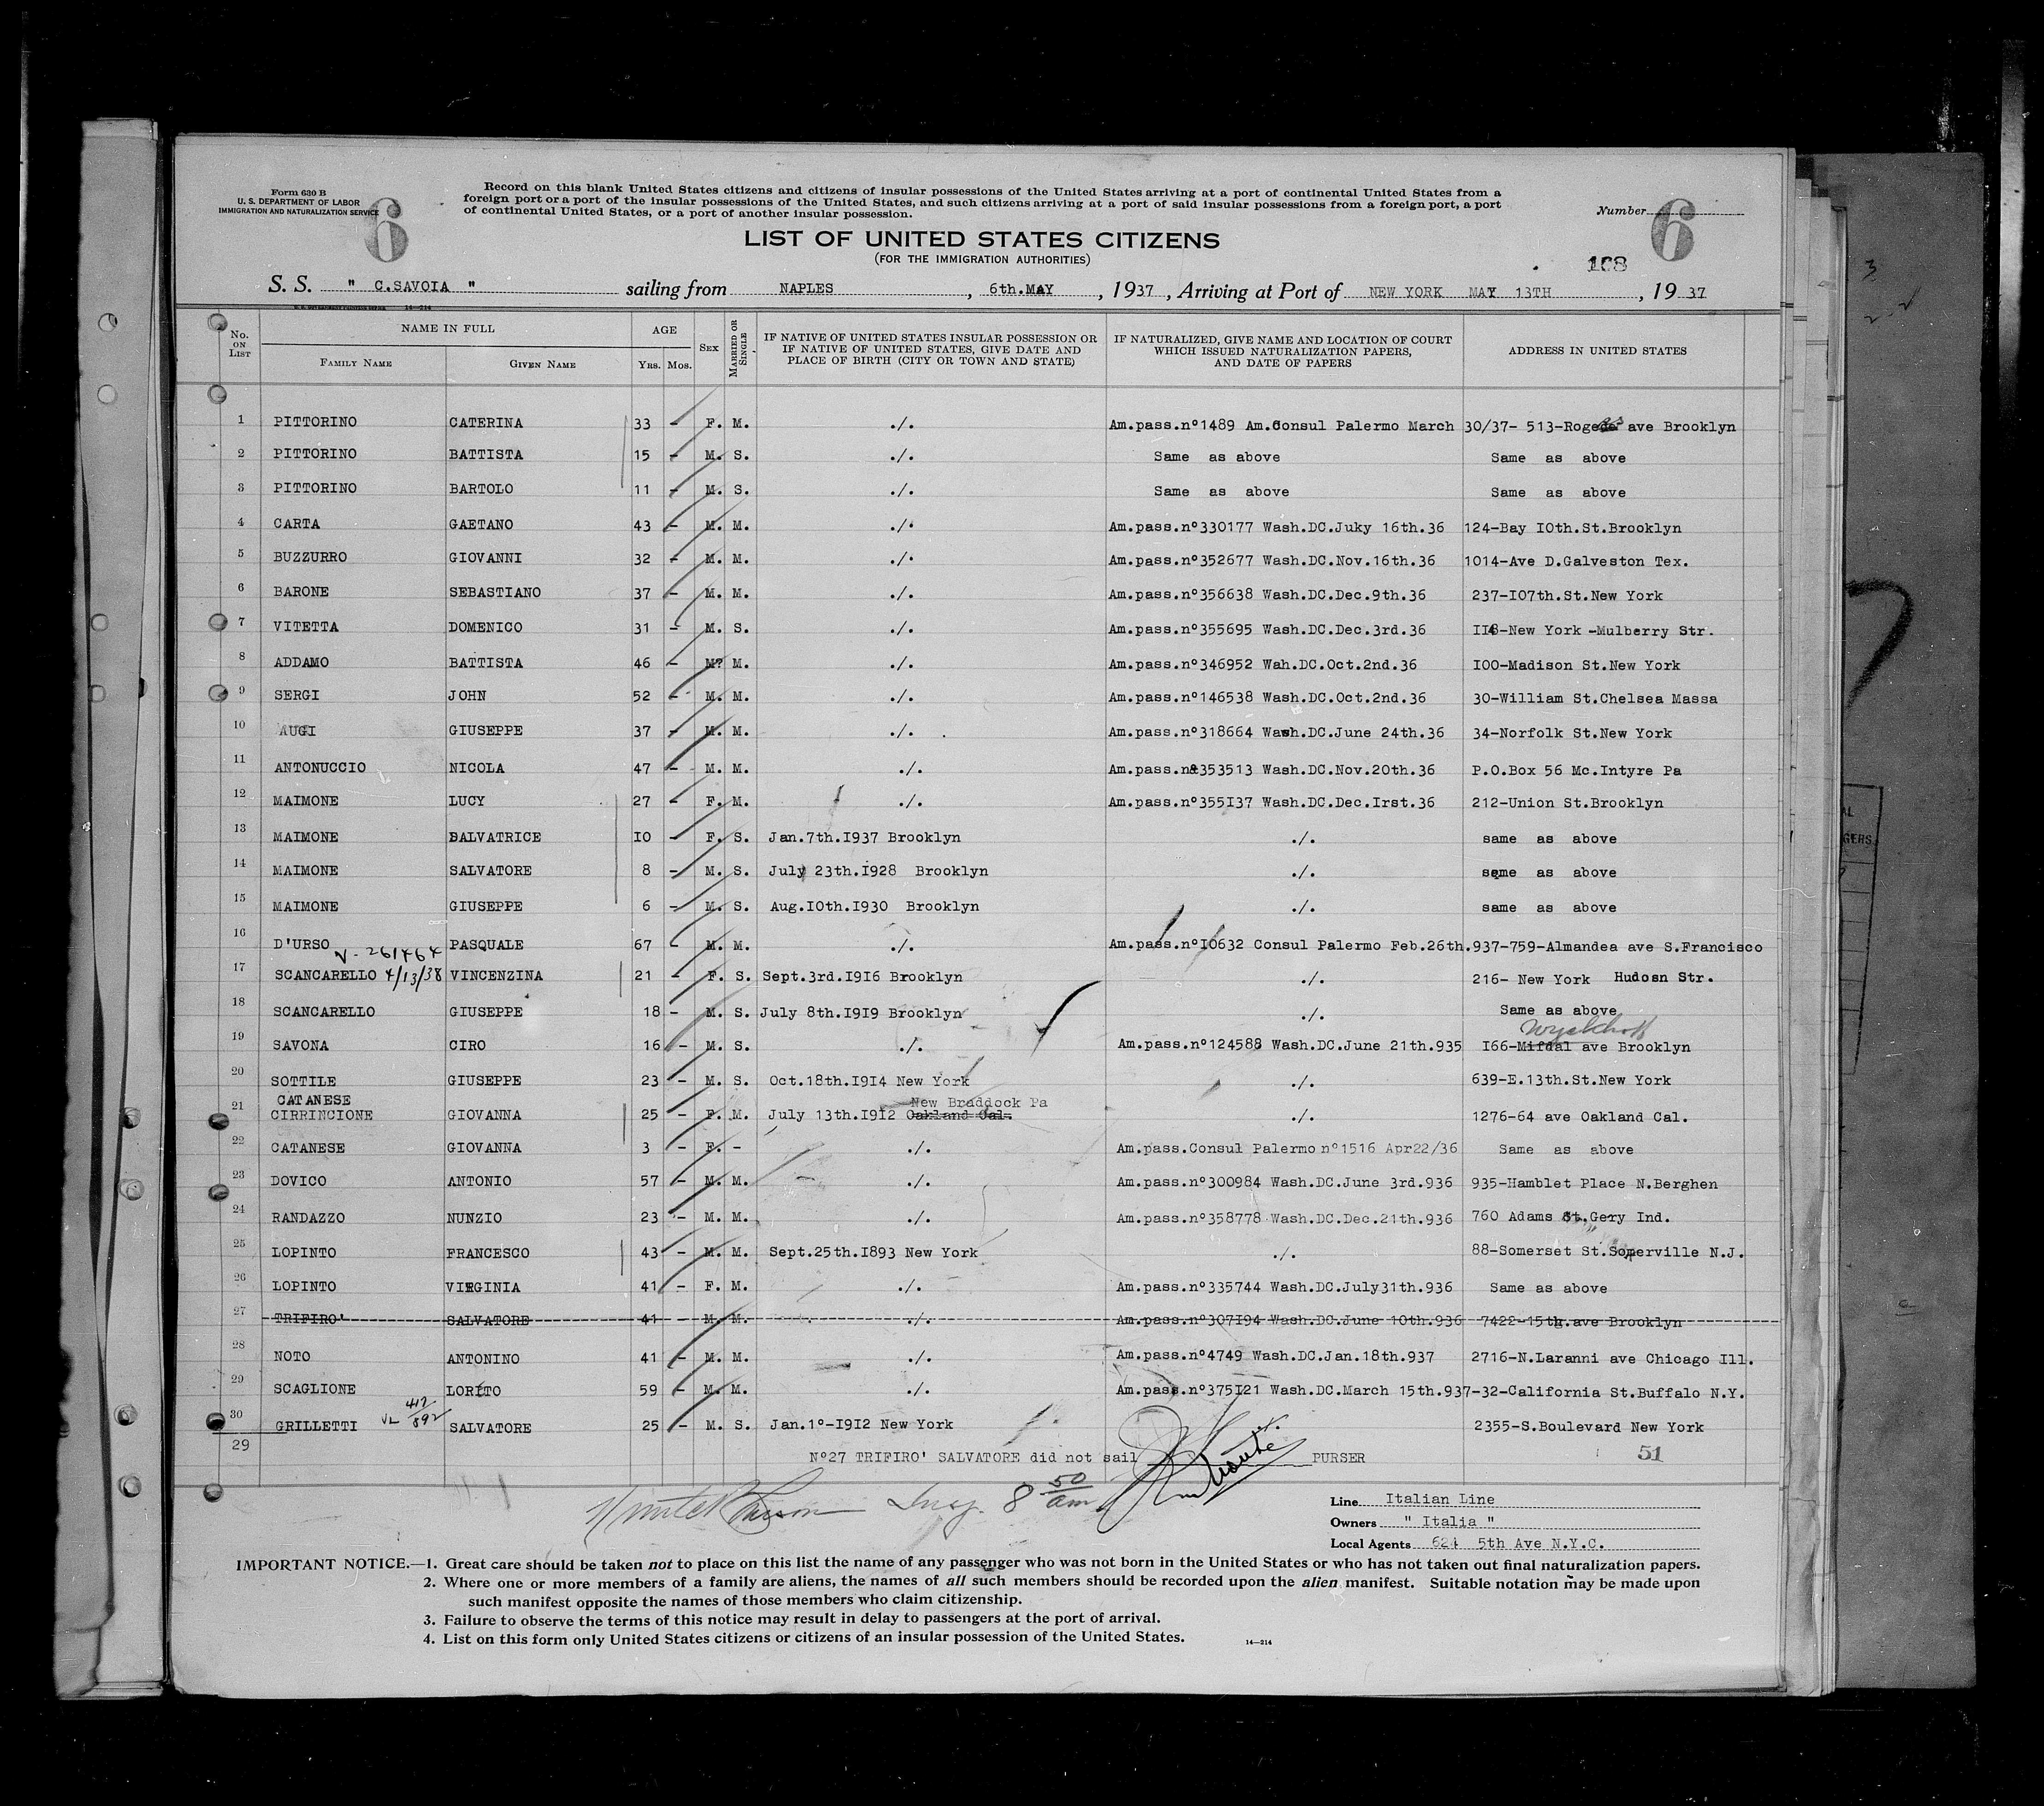 Form 630 B
U. S. DEPARTMENT OF LABOR
IMMIGRATION AND NATURALIZATION SERVICE
6
Record on this blank United States citizens and citizens of insular possessions of the United States arriving at a port of continental United States from a
foreign port or a port of the insular possessions of the United States, and such citizens arriving at a port of said insular possessions from a foreign port, a port
of continental United States, or a port of another insular possession.
Number 6
LIST OF UNITED STATES CITIZENS
(FOR THE IMMIGRATION AUTHORITIES)
168
S. S. " C.SAVOIA " sailing from NAPLES , 6th.MAY , 1937 , Arriving at Port of NEW YORK MAY 13TH , 19 37
No. ON LIST NAME IN FULL AGE SEX MARRIED OR SINGLE IF NATIVE OF UNITED STATES INSULAR POSSESSION OR IF NATIVE OF UNITED STATES, GIVE DATE AND PLACE OF BIRTH (CITY OR TOWN AND STATE) IF NATURALIZED, GIVE NAME AND LOCATION OF COURT WHICH ISSUED NATURALIZATION PAPERS, AND DATE OF PAPERS ADDRESS IN UNITED STATES
FAMILY NAME GIVEN NAME YRS. MOS.
1 PITTORINO CATERINA 33 - F. M. ./. Am.pass.nº1489 Am.Consul Palermo March 30/37- 513-Rogers ave Brooklyn
2 PITTORINO BATTISTA 15 - M. S. ./. Same as above Same as above
3 PITTORINO BARTOLO 11 - M. S. ./. Same as above Same as above
4 CARTA GAETANO 43 - M. M. ./. Am.pass.nº330177 Wash.DC.Juky 16th.36 124-Bay I0th.St.Brooklyn
5 BUZZURRO GIOVANNI 32 - M. M. ./. Am.pass.nº352677 Wash.DC.Nov.16th.36 1014-Ave D.Galveston Tex.
6 BARONE SEBASTIANO 37 - M. M. ./. Am.pass.nº356638 Wash.DC.Dec.9th.36 237-I07th.St.New York
7 VITETTA DOMENICO 31 - M. S. ./. Am.pass.nº355695 Wash.DC.Dec.3rd.36 II8-New York -Mulberry Str.
8 ADDAMO BATTISTA 46 - M? M. ./. Am.pass.nº346952 Wah.DC.Oct.2nd.36 I00-Madison St.New York
9 SERGI JOHN 52 - M. M. ./. Am.pass.nº146538 Wash.DC.Oct.2nd.36 30-William St.Chelsea Massa
10 AUGI GIUSEPPE 37 - M. M. ./. Am.pass.nº318664 Wash.DC.June 24th.36 34-Norfolk St.New York
11 ANTONUCCIO NICOLA 47 - M. M. ./. Am.pass.n&353513 Wash.DC.Nov.20th.36 P.O.Box 56 Mc.Intyre Pa
12 MAIMONE LUCY 27 - F. M. ./. Am.pass.nº355I37 Wash.DC.Dec.Irst.36 212-Union St.Brooklyn
13 MAIMONE SALVATRICE I0 - F. S. Jan.7th.I937 Brooklyn ./. same as above
14 MAIMONE SALVATORE 8 - M. S. July 23th.I928 Brooklyn ./. same as above
15 MAIMONE GIUSEPPE 6 - M. S. Aug.I0th.I930 Brooklyn ./. same as above
16 D'URSO PASQUALE 67 - M. M. ./. Am.pass.nºI0632 Consul Palermo Feb.26th.937-759-Almandea ave S.Francisco
V-261464
17 SCANCARELLO 4/13/38 VINCENZINA 21 - F. S. Sept.3rd.I9I6 Brooklyn ./. 216- New York Hudosn Str.
18 SCANCARELLO GIUSEPPE 18 - M. S. July 8th.I9I9 Brooklyn ./. Same as above
Wyckhoff
19 SAVONA CIRO 16 - M. S. ./. Am.pass.nº124588 Wash.DC.June 21th.935 I66-Mifdal ave Brooklyn
20 SOTTILE GIUSEPPE 23 - M. S. Oct.18th.I9I4 New York ./. 639-E.13th.St.New York
CATANESE New Braddock Pa
21 CIRRINCIONE GIOVANNA 25 - F. M. July 13th.I9I2 Oakland Cal. ./. 1276-64 ave Oakland Cal.
22 CATANESE GIOVANNA 3 - F. - ./. Am.pass.Consul Palermo nº1516 Apr22/36 Same as above
23 DOVICO ANTONIO 57 - M. M. ./. Am.pass.nº300984 Wash.DC.June 3rd.936 935-Hamblet Place N.Berghen
24 RANDAZZO NUNZIO 23 - M. M. ./. Am.pass.nº358778 Wash.DC.Dec.21th.936 760 Adams St.Gery Ind.
25 LOPINTO FRANCESCO 43 - M. M. Sept.25th.I893 New York ./. 88-Somerset St.Somerville N.J.
26 LOPINTO VIRGINIA 41 - F. M. ./. Am.pass.nº335744 Wash.DC.July31th.936 Same as above
27 TRIFIRO' SALVATORE 41 - M. M. ./. Am.pass.nº307I94 Wash.DC.June 10th.936 7422-15th.ave Brooklyn
28 NOTO ANTONINO 41 - M. M. ./. Am.pass.nº4749 Wash.DC.Jan.18th.937 2716-N.Laranni ave Chicago Ill.
29 SCAGLIONE LORITO 59 - M. M. ./. Am.pass.nº375I21 Wash.DC.March 15th.937-32-California St.Buffalo N.Y.
30 GRILLETTI VL 417/892 SALVATORE 25 - M. S. Jan.1º-I9I2 New York 2355-S.Boulevard New York
29 Nº27 TRIFIRO' SALVATORE did not sail PURSER 51
Insp. 8 50 am
Line Italian Line
Owners " Italia "
Local Agents 624 5th Ave N.Y.C.
IMPORTANT NOTICE.—1. Great care should be taken not to place on this list the name of any passenger who was not born in the United States or who has not taken out final naturalization papers.
2. Where one or more members of a family are aliens, the names of all such members should be recorded upon the alien manifest. Suitable notation may be made upon
such manifest opposite the names of those members who claim citizenship.
3. Failure to observe the terms of this notice may result in delay to passengers at the port of arrival.
4. List on this form only United States citizens or citizens of an insular possession of the United States.
14—214